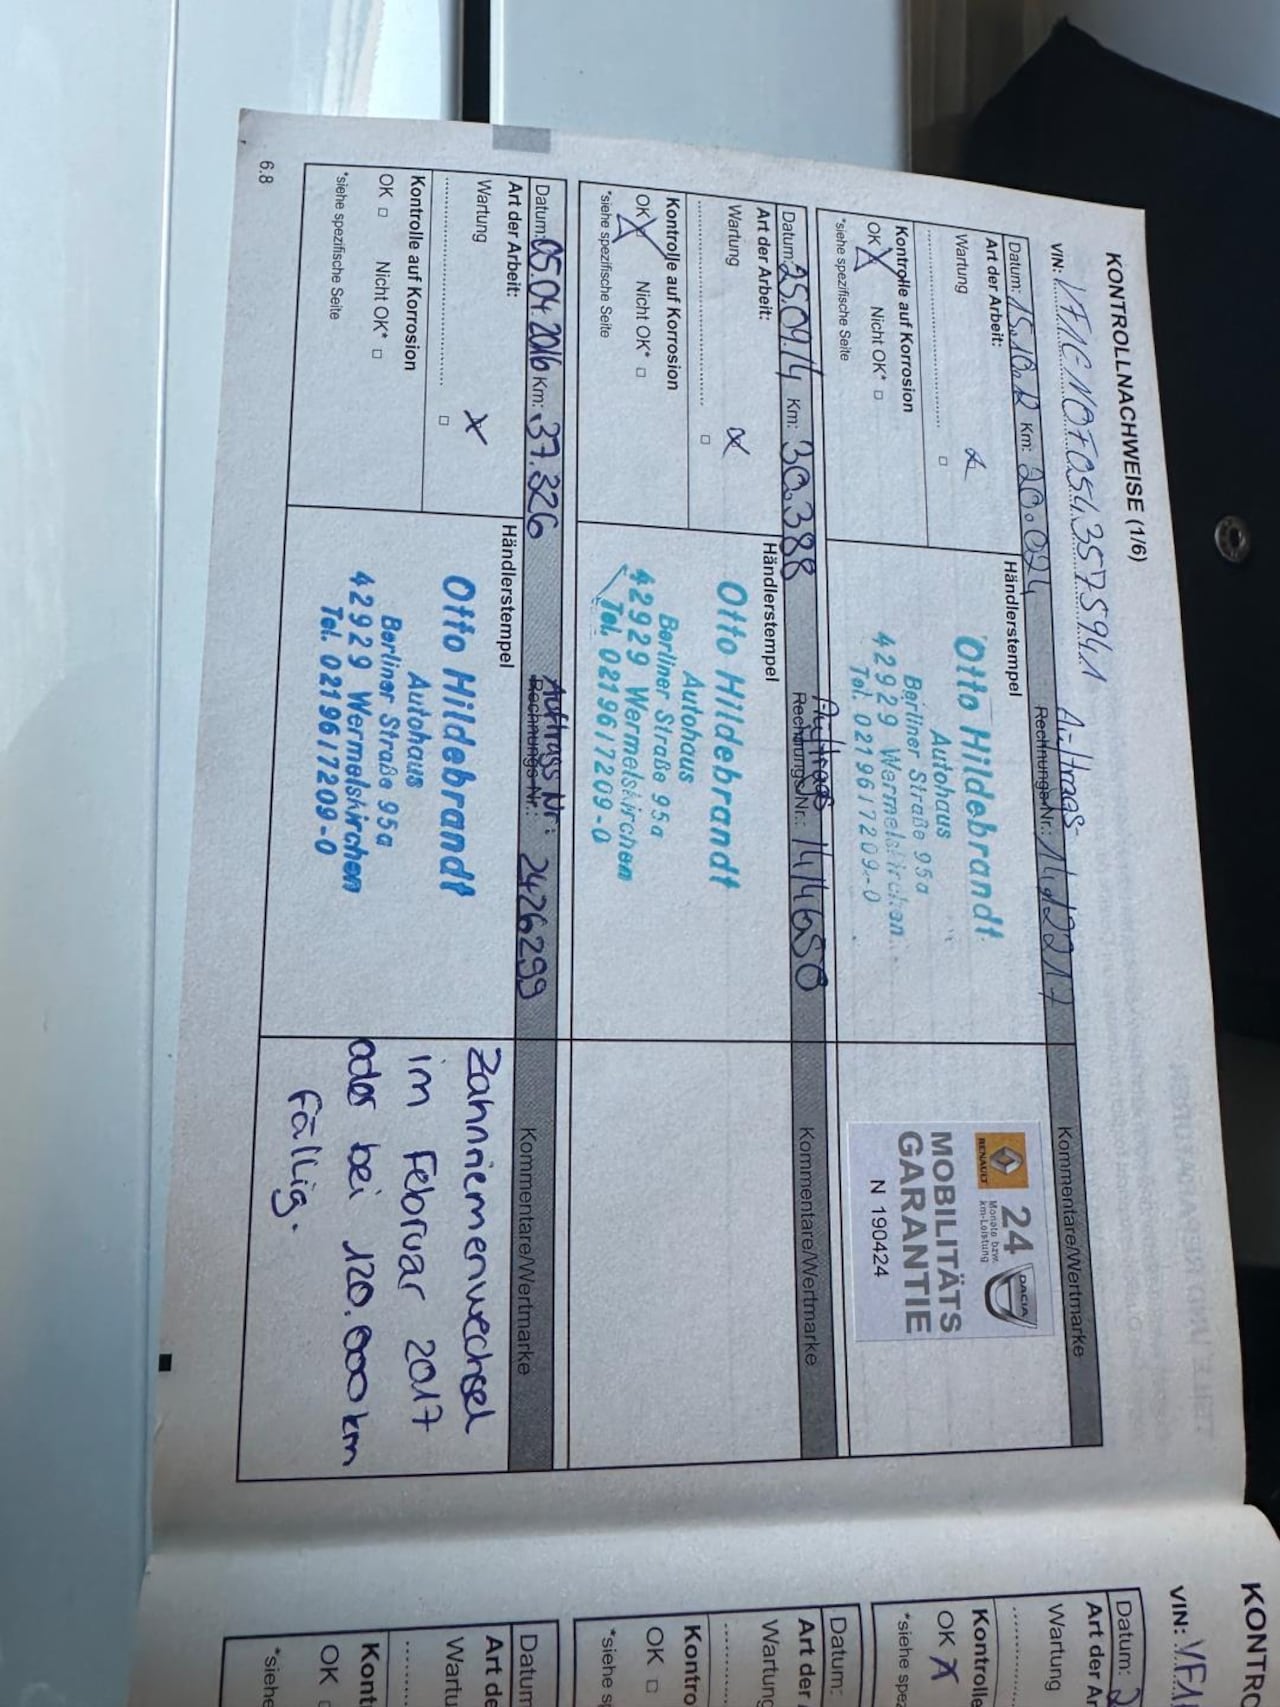 KONTROLLNACHWEISE (1/6)
VIN: VF1CN0F0543575941
Auftrags-
Datum: 15.10.12 Km: 20.024 Rechnungs-Nr.: Kommentare/Wertmarke
Art der Arbeit:
Wartung
Kontrolle auf Korrosion
OK Nicht OK*
*siehe spezifische Seite
Händlerstempel
Otto Hildebrandt
Autohaus
Berliner Straße 95a
42929 Wermelskirchen
Tel. 02196 17209-0
RENAULT
24
Monate bzw.
km-Leistung
DACIA
MOBILITÄTS
GARANTIE
N 190424
Auftrags
Datum: 25.09.14 Km: 30.388 Rechnungs-Nr.: 1414650 Kommentare/Wertmarke
Art der Arbeit:
Wartung
Kontrolle auf Korrosion
OK Nicht OK*
*siehe spezifische Seite
Händlerstempel
Otto Hildebrandt
Autohaus
Berliner Straße 95a
42929 Wermelskirchen
Tel. 02196 17209-0
Auftrags Nr:
Datum: 05.04.2016 Km: 37.326 Rechnungs-Nr.: 2426299 Kommentare/Wertmarke
Art der Arbeit:
Wartung
Kontrolle auf Korrosion
OK Nicht OK*
*siehe spezifische Seite
Händlerstempel
Otto Hildebrandt
Autohaus
Berliner Straße 95a
42929 Wermelskirchen
Tel. 02196 17209-0
Zahnriemenwechsel
im Februar 2017
oder bei 120.000 km
fällig.
6.8
KONTRO
VIN: VF1
Datum: 2
Art der Ar
Wartung
Kontrolle
OK
*siehe spez
Datum:
Art der
Wartung
Kontro
OK
*siehe s
Datum
Art de
Wartu
Kont
OK
*siehe